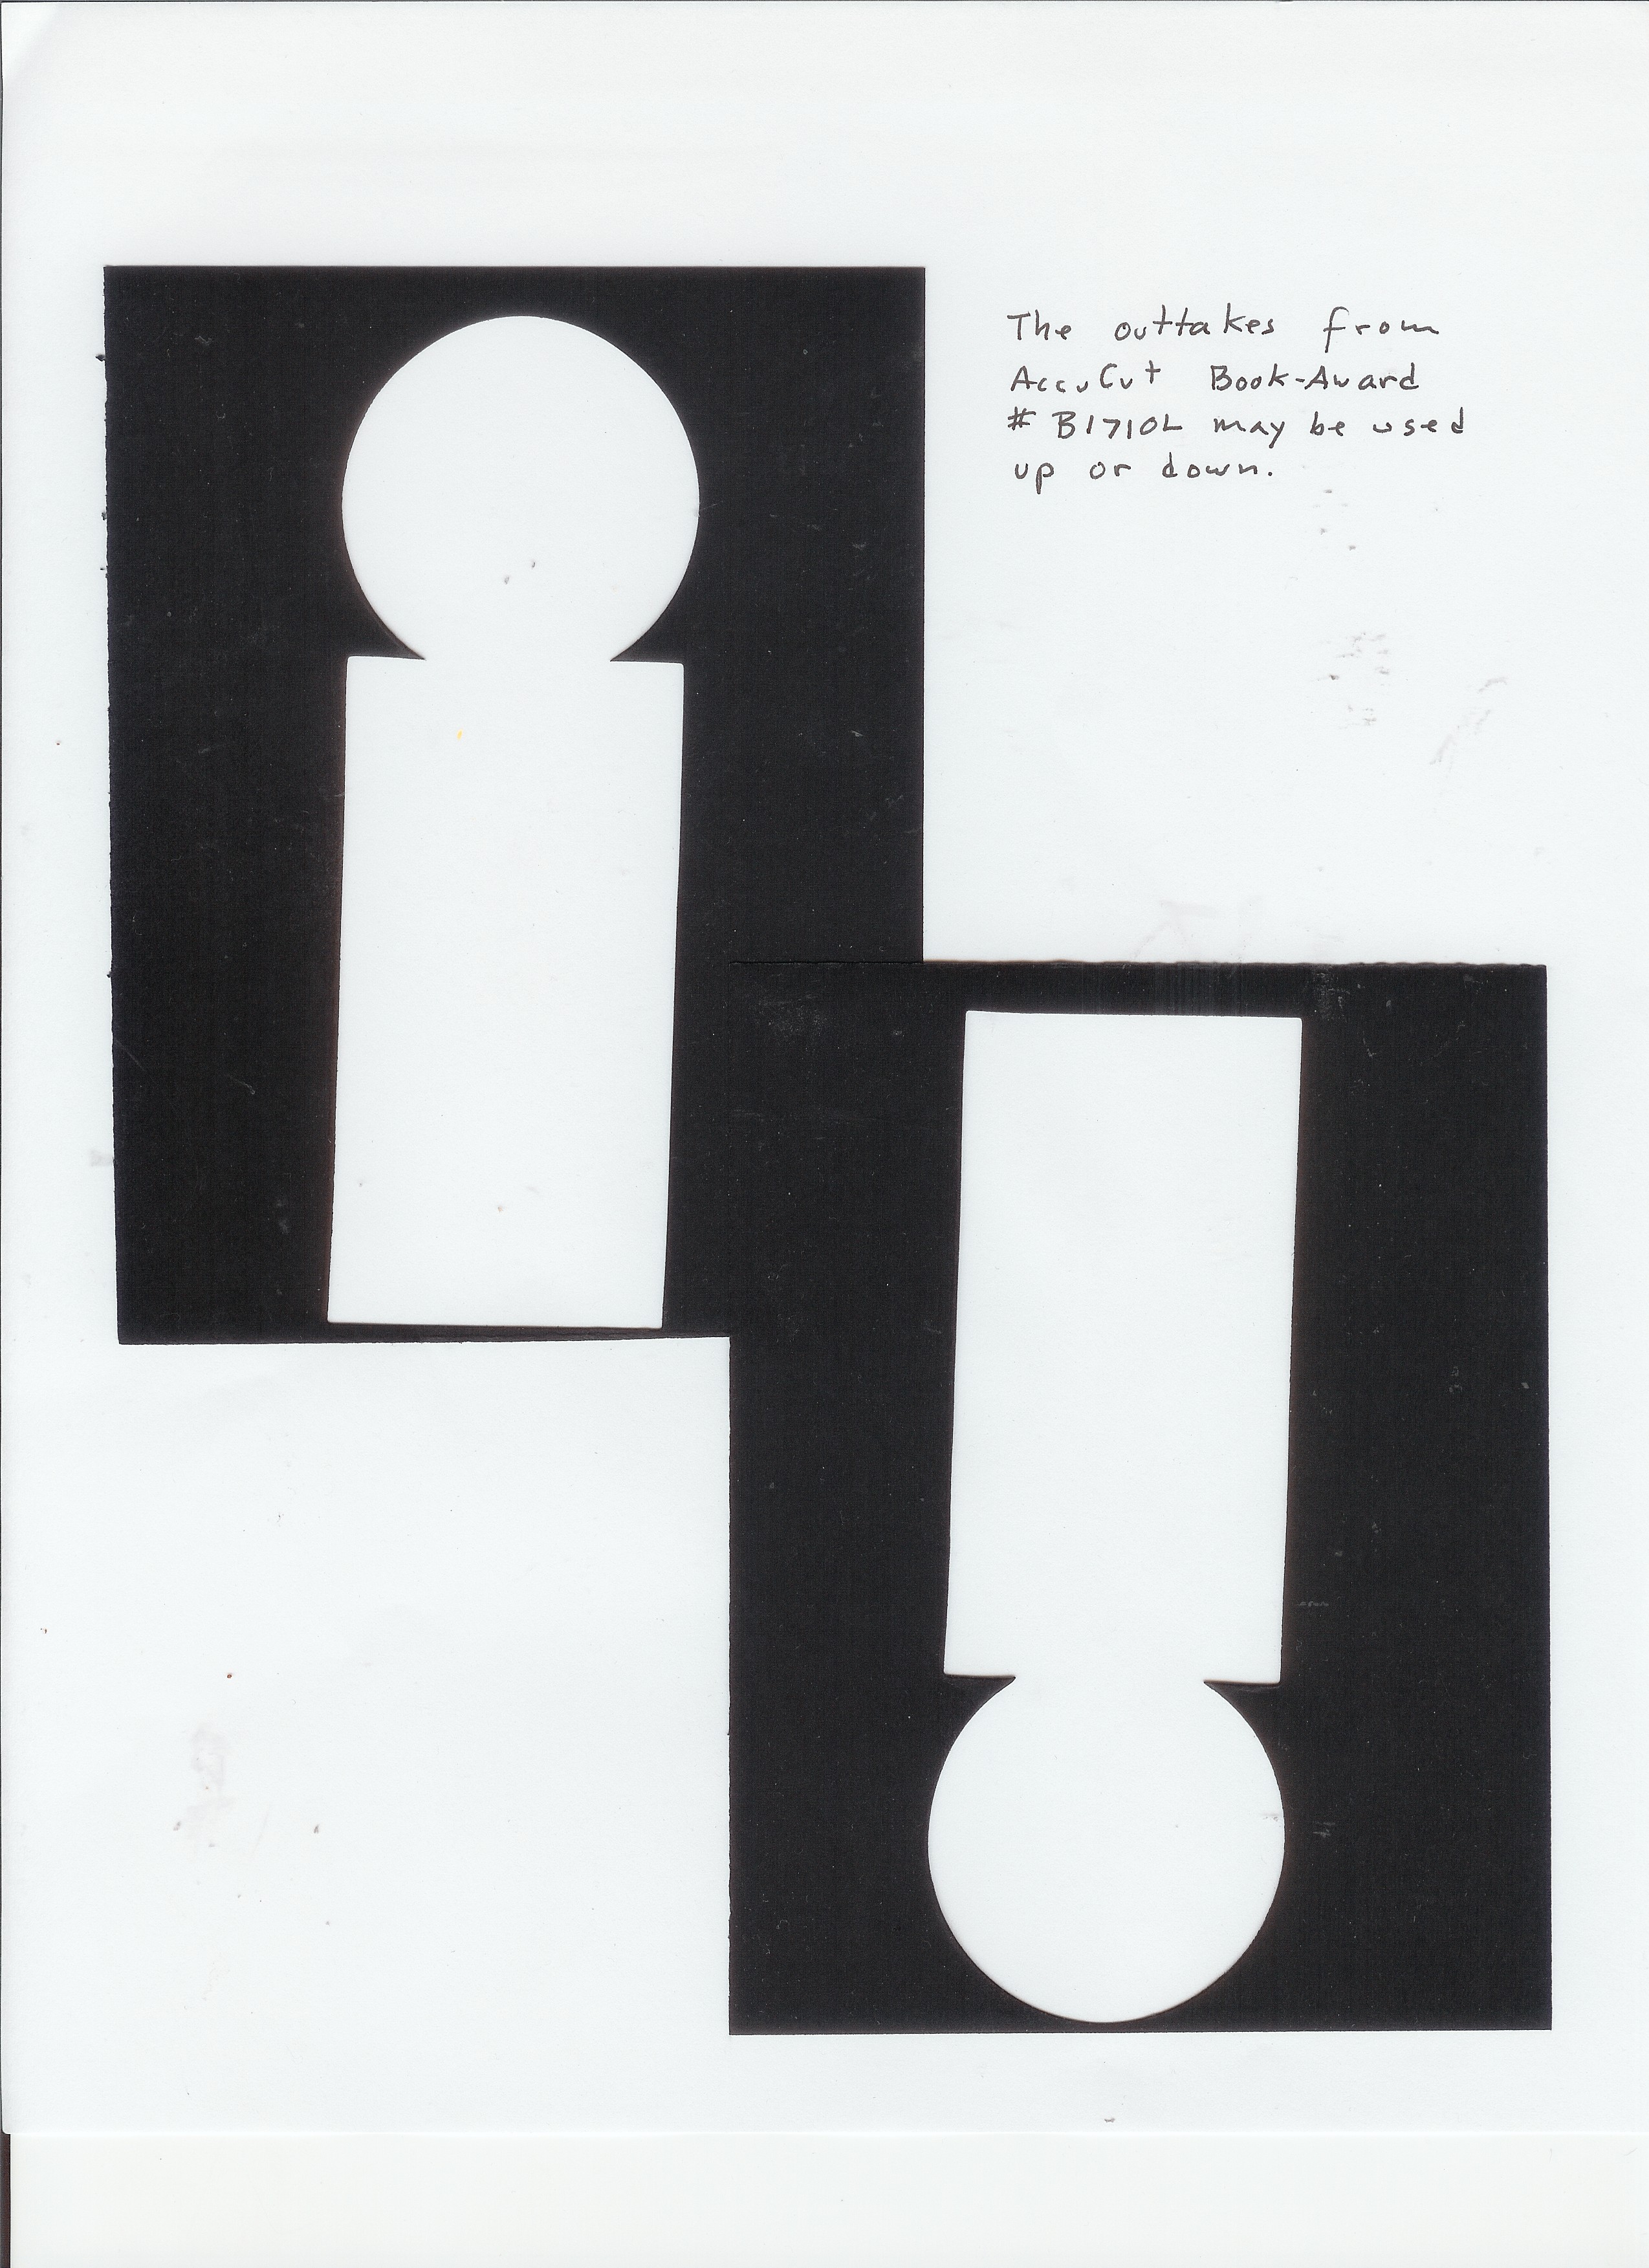 The outtakes from
AccuCut Book-Award
# B1710L may be used
up or down.